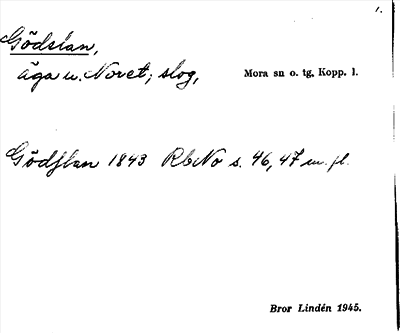 1.
Gödslan,
äga u. Noret; slog,
Mora sn o. tg, Kopp. l.
Gödslan 1843 RbNo s. 46, 47 m. fl.
Bror Lindén 1945.